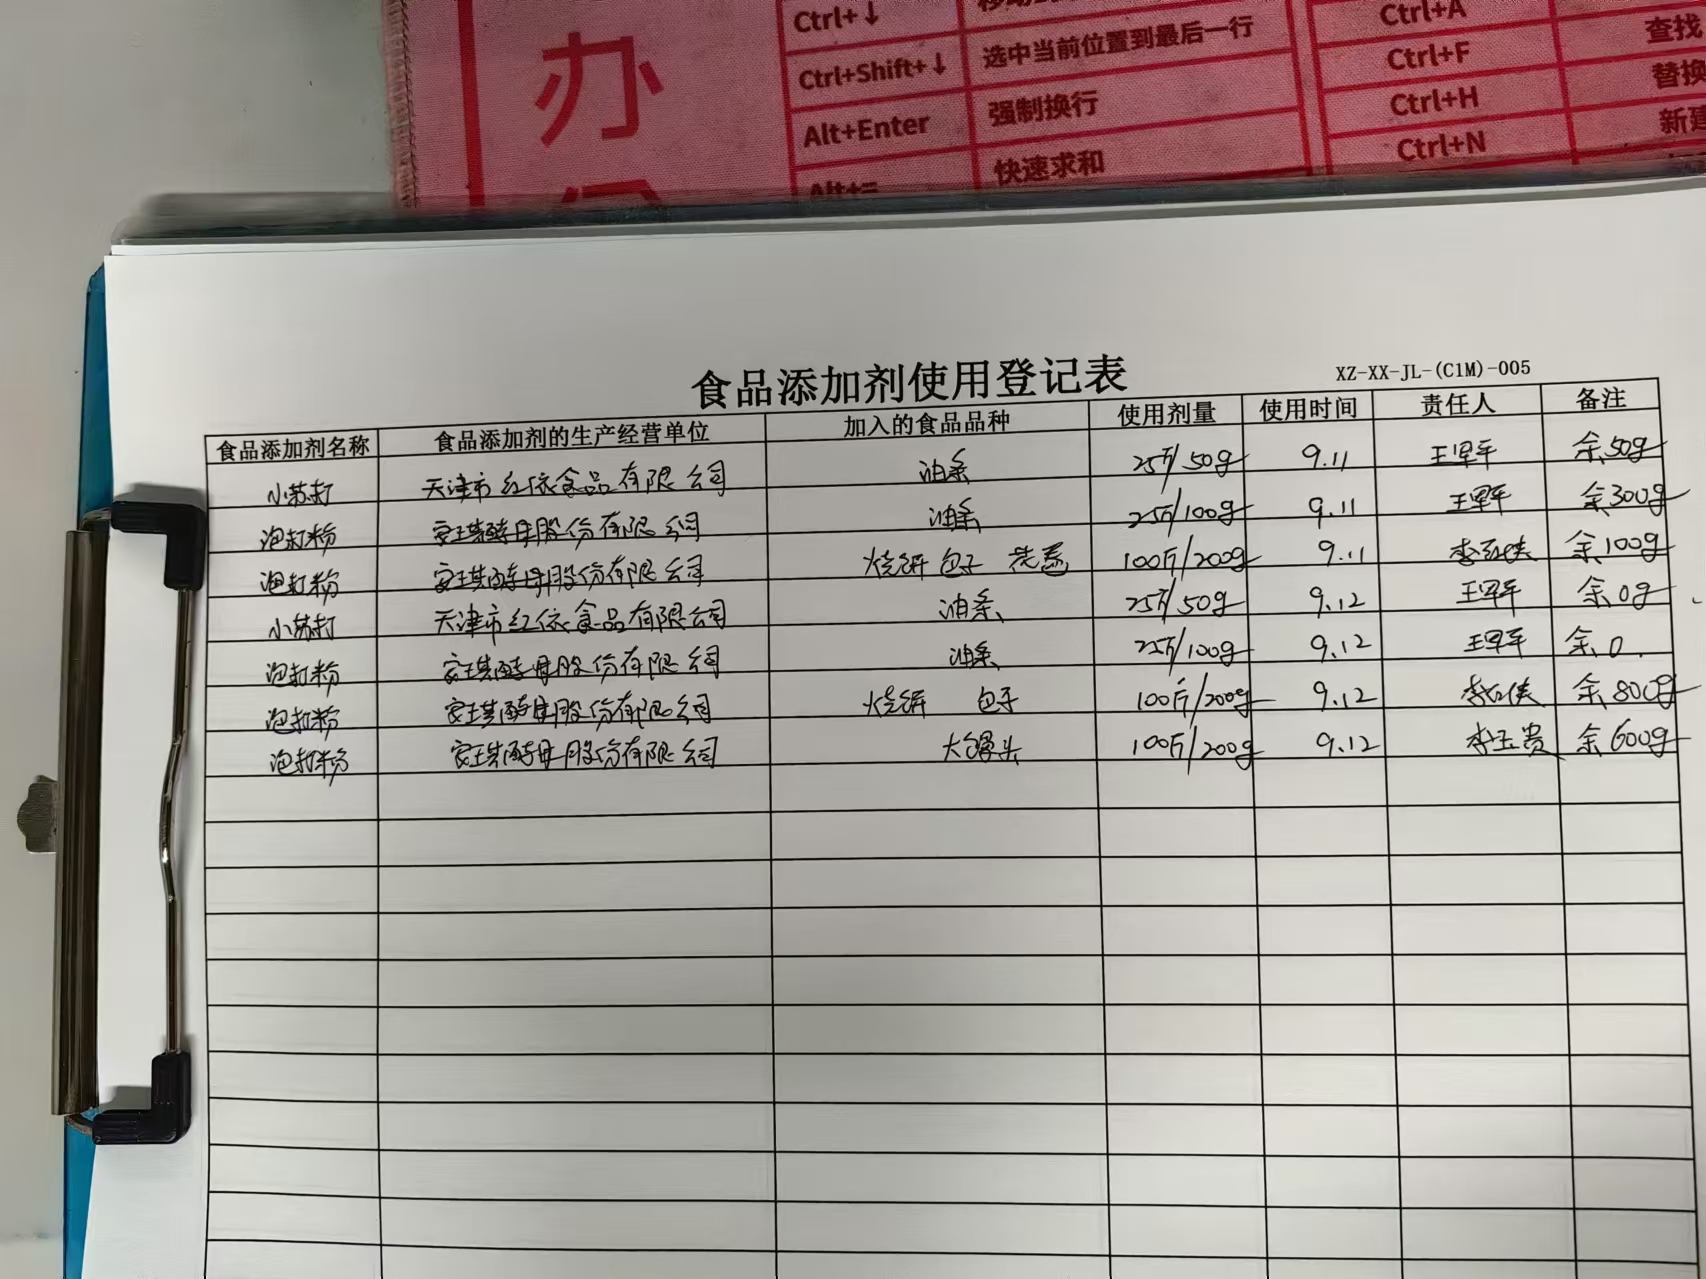 办
Ctrl+↓
Ctrl+Shift+↓ 选中当前位置到最后一行
Alt+Enter 强制换行
Alt+= 快速求和
Ctrl+A
Ctrl+F 查找
Ctrl+H 替换
Ctrl+N 新建
食品添加剂使用登记表 XZ-XX-JL-(C1M)-005
食品添加剂名称 食品添加剂的生产经营单位 加入的食品品种 使用剂量 使用时间 责任人 备注
小苏打 天津市红依食品有限公司 油条 25斤/50g 9.11 王军军 余50g
泡打粉 安琪酵母股份有限公司 油条 25斤/100g 9.11 王军军 余300g
泡打粉 安琪酵母股份有限公司 烧饼 包子 100斤/200g 9.11 余100g
小苏打 天津市红依食品有限公司 油条 25斤/50g 9.12 王军军 余0g
泡打粉 安琪酵母股份有限公司 油条 25斤/100g 9.12 王军军 余0.
泡打粉 安琪酵母股份有限公司 烧饼 包子 100斤/200g 9.12 余800g
泡打粉 安琪酵母股份有限公司 大馒头 100斤/200g 9.12 李玉贵 余600g